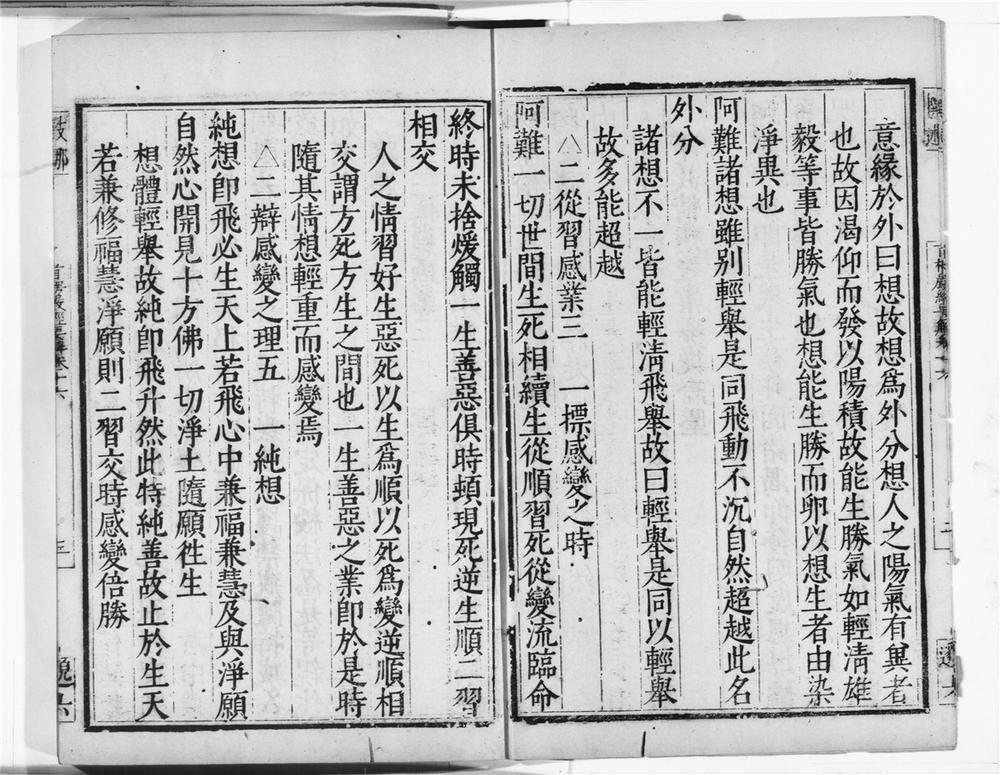 意緣於外曰想故想爲外分想人之陽氣有異者
也故因渴仰而發以陽積故能生勝氣如輕清雄
毅等事皆勝氣也想能生勝而卵以想生者由染
淨異也
阿難諸想雖別輕舉是同飛動不沉自然超越此名
外分
諸想不一皆能輕淸飛舉故曰輕舉是同以輕舉
故多能超越
△二從習感業三 一標感變之時
阿難一切世間生死相續生從順習死從變流臨命
終時未捨煖觸一生善惡俱時頓現死逆生順二習
相交
人之情習好生惡死以生爲順以死爲變逆順相
交謂方死方生之間也一生善惡之業卽於是時
隨其情想輕重而感變焉
△二辯感變之理五 一純想
純想卽飛必生天上若飛心中兼福兼慧及與淨願
自然心開見十方佛一切淨土隨願徃生
想體輕舉故純卽飛升然此特純善故止於生天
若兼修福慧淨願則二習交時感變倍勝